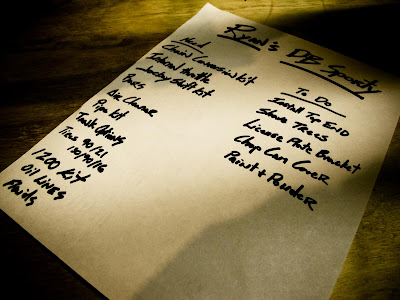 Ryan's DB Sporty
Need
Chain Conversion kit
Internal throttle
Jockey Shift kit
Bars
Air Cleaner
Pipe kit
Tank
Tires 90/21
130/90/16
1200 kit
Oil Lines
Fluids
To Do
Install Top END
Shave Trees
License Plate Bracket
Chop Cam Cover
Paint + Powder